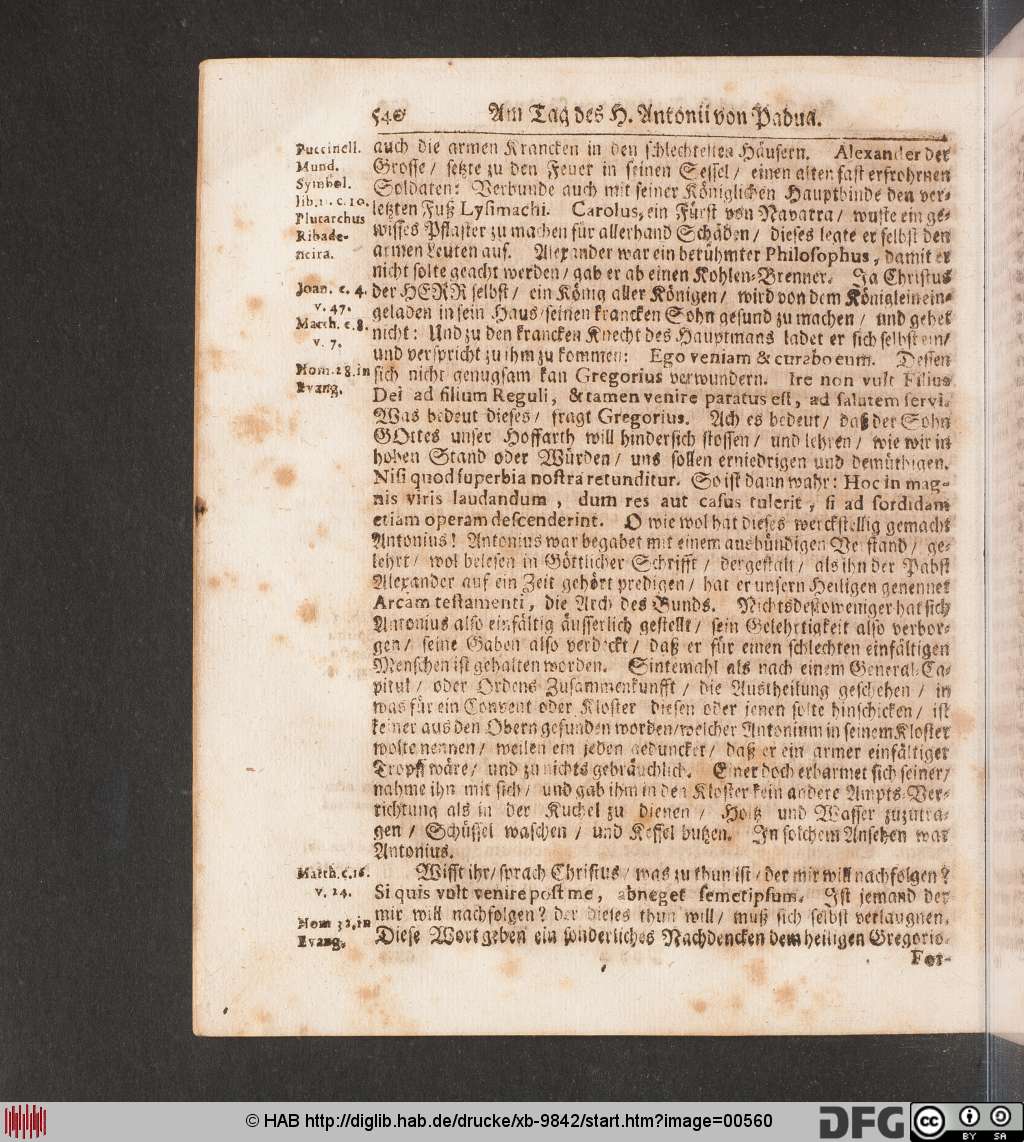 540 Am Tag des H. Antonii von Padua.
Puccinell.
Mund.
Symbol.
lib. 1. c. 10.
Plutarchus
Ribade-
neira.
Joan. c. 4.
v. 47.
Matth. c. 8.
v. 7.
Hom. 28. in
Evang.
auch die armen Krancken in den schlechtesten Häusern. Alexander der
Grosse / setzte zu den Feuer in seinen Sessel / einen alten fast erfrohrnen
Soldaten: Verbunde auch mit seiner Königlichen Hauptbinde den ver-
letzten Fuß Lysimachi. Carolus, ein Fürst von Navarra / wuste ein ge-
wisses Pflaster zu machen für allerhand Schäden / dieses legte er selbst den
armen Leuten auf. Alexander war ein berühmter Philosophus, damit er
nicht solte geacht werden / gab er ab einen Kohlen-Brenner. Ja Christus
der HERR selbst / ein König aller Königen / wird von dem Königlein ein-
geladen in sein Haus / seinen krancken Sohn gesund zu machen / und gehet
nicht: Und zu den krancken Knecht des Hauptmans ladet er sich selbst ein /
und verspricht zu ihm zu kommen: Ego veniam & curabo eum. Dessen
sich nicht genugsam kan Gregorius verwundern. Ire non vult Filius
Dei ad filium Reguli, & tamen venire paratus est, ad salutem servi.
Was bedeut dieses / fragt Gregorius. Ach es bedeut / daß der Sohn
GOttes unser Hoffarth will hindersich stossen / und lehren / wie wir in
hohen Stand oder Würden / uns sollen erniedrigen und demüthigen.
Nisi quod superbia nostra retunditur. So ist dann wahr: Hoc in mag-
nis viris laudandum, dum res aut casus tulerit, si ad sordidam
etiam operam descenderint. O wie wol hat dieses werckstellig gemacht
Antonius! Antonius war begabet mit einem ausbündigen Verstand / ge-
lehrt / wol belesen in Göttlicher Schrifft / dergestalt / als ihn der Pabst
Alexander auf ein Zeit gehört predigen / hat er unsern Heiligen genennet
Arcam testamenti, die Arch des Bunds. Nichtsdestoweniger hat sich
Antonius also einfältig äusserlich gestellt / sein Gelehrtigkeit also verbor-
gen / seine Gaben also verdeckt / daß er für einen schlechten einfältigen
Menschen ist gehalten worden. Sintemahl als nach einem General-Ca-
pitul / oder Ordens Zusammenkunfft / die Austheilung geschehen / in
was für ein Convent oder Kloster diesen oder jenen solte hinschicken / ist
keiner aus den Obern gefunden worden / welcher Antonium in seinem Kloster
wolte nennen / weilen ein jeden gedunckèt / daß er ein armer einfältiger
Tropff wäre / und zu nichts gebräuchlich. Einer doch erbarmet sich seiner /
nahme ihn mit sich / und gab ihm in den Kloster kein andere Ampts-Ver-
richtung als in der Kuchel zu dienen / Holtz und Wasser zuzutra-
gen / Schüssel waschen / und Kessel butzen. In solchem Ansehen war
Antonius.
Matth. c. 16.
v. 24.
Hom 32. in
Evang.
Wisst ihr / sprach Christus / was zu thun ist / der mir will nachfolgen?
Si quis vult venire post me, abneget semetipsum. Ist jemand der
mir will nachfolgen? der dieses thun will / muß sich selbst verlaugnen.
Diese Wort geben ein sonderliches Nachdencken dem heiligen Gregorio.
For-
© HAB http://diglib.hab.de/drucke/xb-9842/start.htm?image=00560
DFG
CC
BY SA